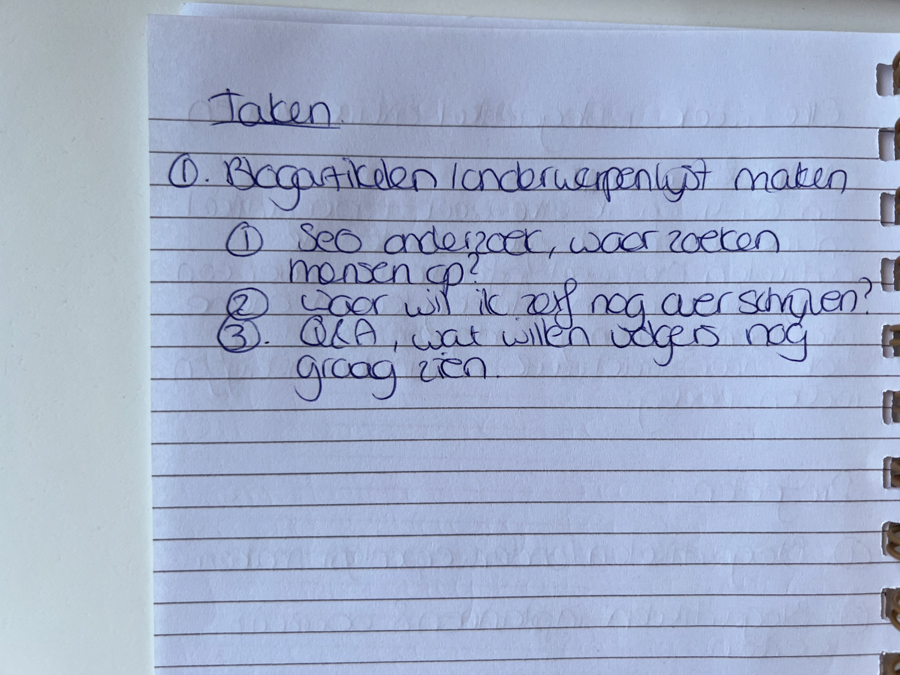 Taken
①. Blogartikelen / onderwerpenlijst maken
① Seo onderzoek, waar zoeken
mensen op?
② Waar wil ik zelf nog over schrijven?
③. Q&A, wat willen volgers nog
graag zien.